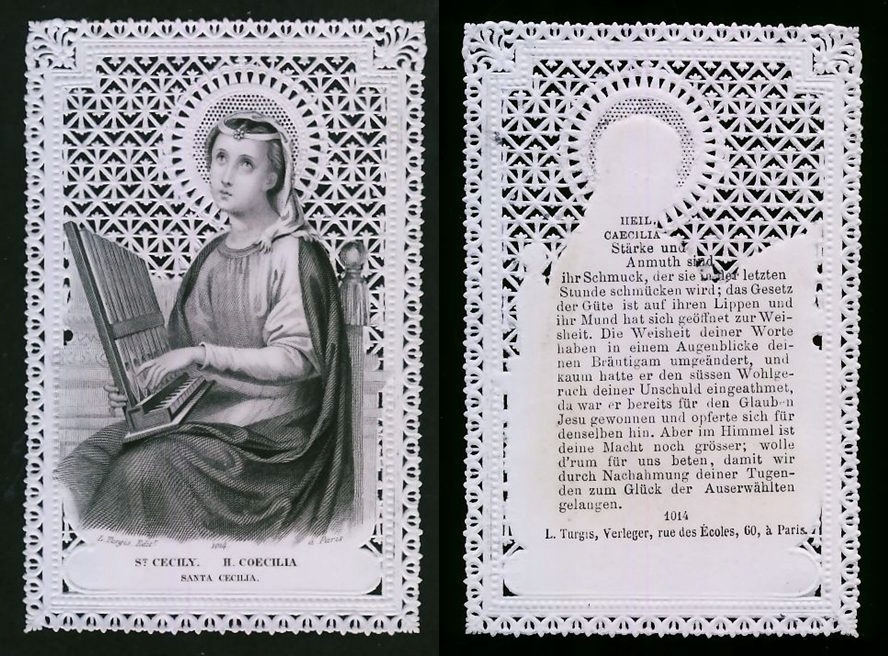 L. Turgis, Edit.r 1014 à Paris
ST. CECILY. H. COECILIA
SANTA CECILIA.
HEIL.
CAECILIA
Stärke und
Anmuth sind
ihr Schmuck, der sie in der letzten
Stunde schmücken wird; das Gesetz
der Güte ist auf ihren Lippen und
ihr Mund hat sich geöffnet zur Wei-
sheit. Die Weisheit deiner Worte
haben in einem Augenblicke dei-
nen Bräutigam umgeändert, und
kaum hatte er den süssen Wohlge-
ruch deiner Unschuld eingeathmet,
da war er bereits für den Glauben
Jesu gewonnen und opferte sich für
denselben hin. Aber im Himmel ist
deine Macht noch grösser; wolle
d'rum für uns beten, damit wir
durch Nachahmung deiner Tugen-
den zum Glück der Auserwählten
gelangen.
1014
L. Turgis, Verleger, rue des Écoles, 60, à Paris.